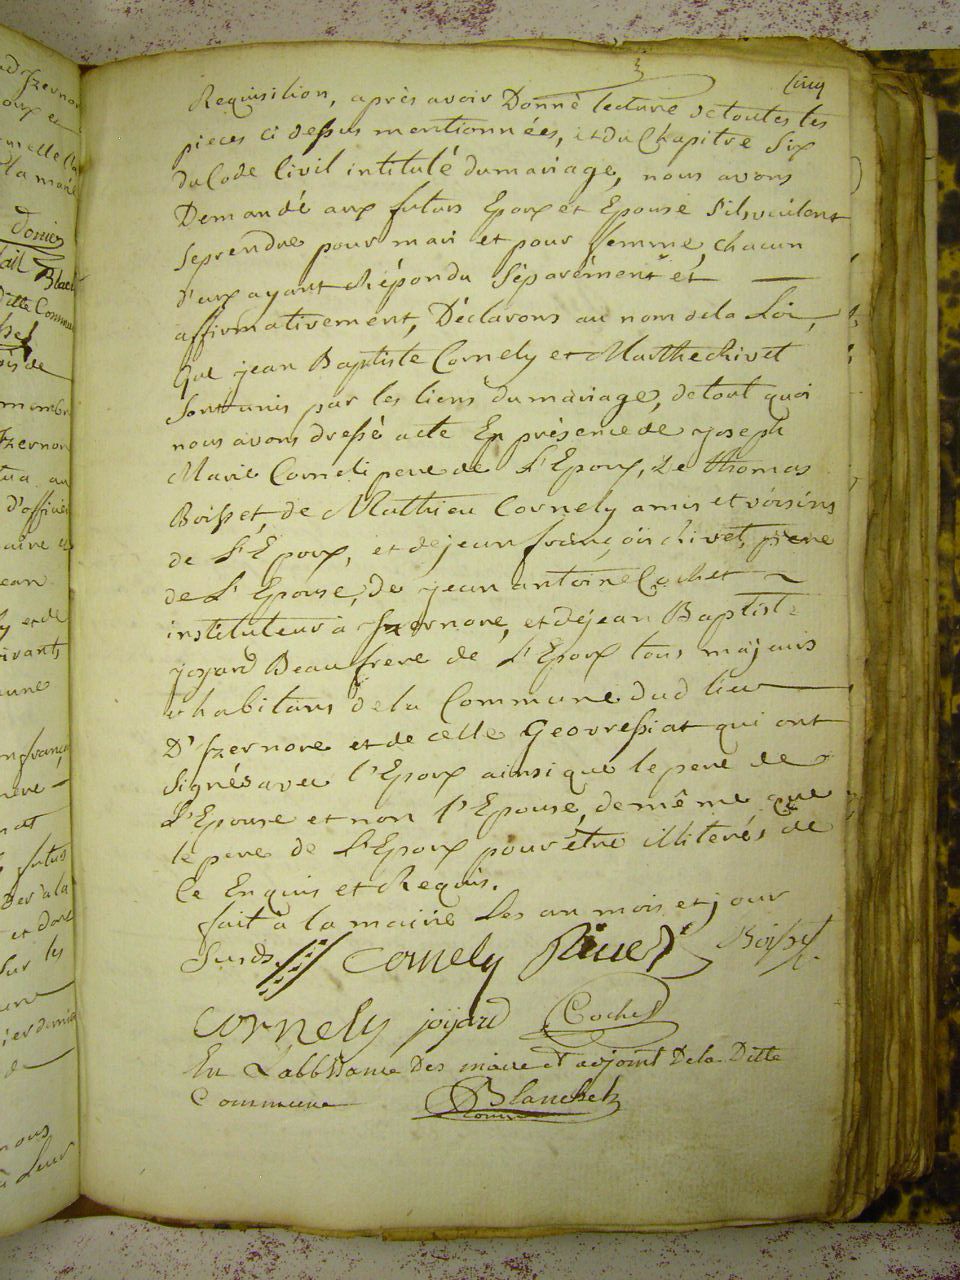 Cinq
Requisition, après avoir Donné lecture de toutes les
pieces ci dessus mentionnées, et du Chapitre Six
du Code Civil intitulé du mariage, nous avons
Demandé aux futurs Epoux et Epouse s'ils veulent
se prendre pour mari et pour femme, chacun
d'eux ayant Répondu Séparément et
affirmativement, Déclarons au nom de la Loi,
que jean Baptiste Cornely et Marthe chivet
Sont unis par les liens du mariage, de tout quoi
nous avons dressé acte En présence de joseph
Marie Corneli pere de L'Epoux, de thomas
Boisset, de Mathieu Cornely amis et voisins
de L'Epoux, et de jean françois chivet, pere
de L'Epouse, de jean antoine Cochet
instituteur à Izernore, et de jean Baptiste
joyard Beaufrere de L'Epoux tous majeurs
et habitans de la Commune Dud lieu
D'Izernore et de celle Geovressiat qui ont
Signés avec l'Epoux ainsi que le pere de
L'Epouse et non l'Epouse, de même que
le pere de L'Epoux pour être illiterés de
Ce Enquis et Requis.
fait à la mairie Les an mois et jour
Susds Cornely Boisset
cornely joyard Cochet
En Labbsance Des maire et adjoint De la Ditte
Commune Blanchet
Donier
Izernore